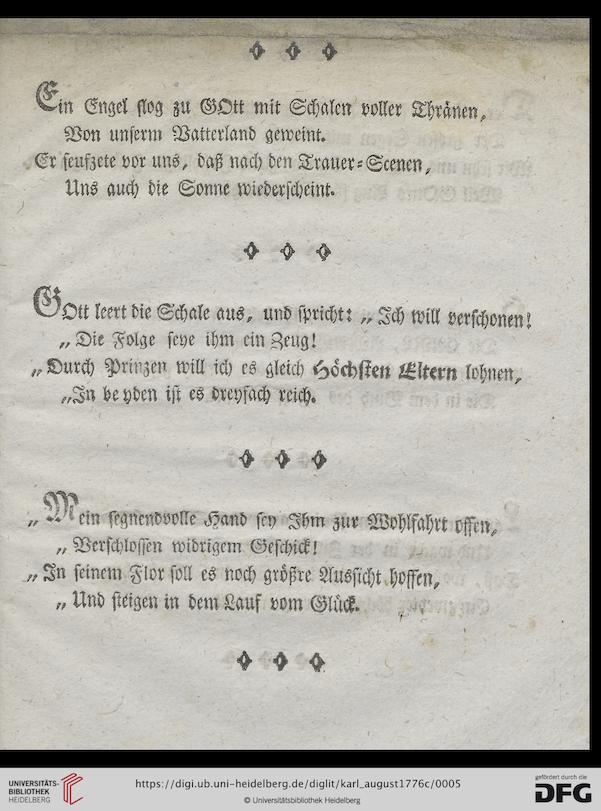 Ein Engel flog zu GOtt mit Schalen voller Thränen,
Von unserm Vatterland geweint.
Er seufzete vor uns, daß nach den Trauer-Scenen,
Uns auch die Sonne wiederscheint.
GOtt leert die Schale aus, und spricht: „ Ich will verschonen!
„ Die Folge seye ihm ein Zeug!
„ Durch Prinzen will ich es gleich Höchsten Eltern lohnen,
„In beyden ist es dreyfach reich.
„ Mein segnendvolle Hand sey Ihm zur Wohlfahrt offen,
„ Verschlossen widrigem Geschick!
„ In seinem Flor soll es noch größre Aussicht hoffen,
„ Und steigen in dem Lauf vom Glück.
UNIVERSITÄTS-
BIBLIOTHEK
HEIDELBERG
https://digi.ub.uni-heidelberg.de/diglit/karl_august1776c/0005
© Universitätsbibliothek Heidelberg
gefördert durch die
DFG